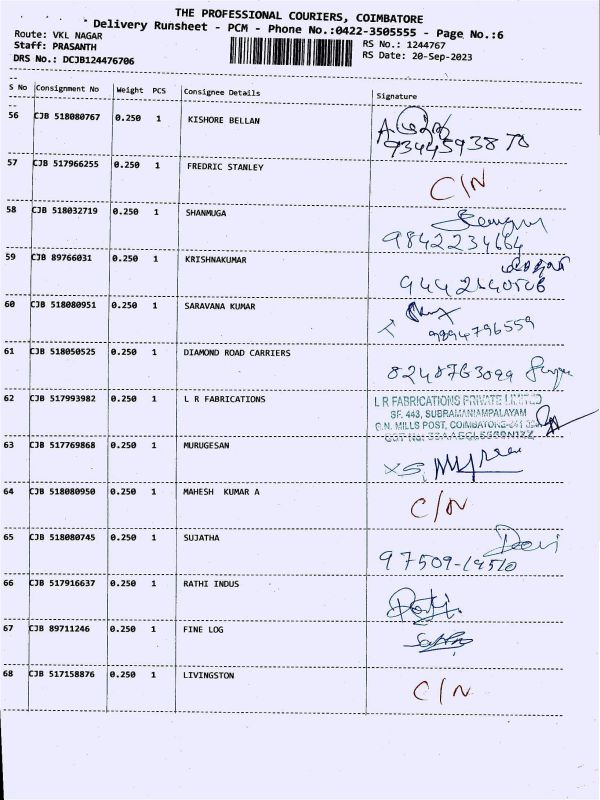 THE PROFESSIONAL COURIERS, COIMBATORE
Delivery Runsheet - PCM - Phone No.:0422-3505555 - Page No.:6
Route: VKL NAGAR
Staff: PRASANTH
DRS No.: DCJB124476706
RS No.: 1244767
RS Date: 20-Sep-2023
S No Consignment No Weight PCS Consignee Details Signature
56 CJB 518080767 0.250 1 KISHORE BELLAN
57 CJB 517966255 0.250 1 FREDRIC STANLEY C/N
58 CJB 518032719 0.250 1 SHANMUGA
9842234664
59 CJB 89766031 0.250 1 KRISHNAKUMAR
60 CJB 518080951 0.250 1 SARAVANA KUMAR
9894796559
61 CJB 518050525 0.250 1 DIAMOND ROAD CARRIERS
8248763099
62 CJB 517993982 0.250 1 L R FABRICATIONS L R FABRICATIONS PRIVATE LIMITED
SF. 443, SUBRAMANIAMPALAYAM
G.N. MILLS POST, COIMBATORE-641
63 CJB 517769868 0.250 1 MURUGESAN
64 CJB 518080950 0.250 1 MAHESH KUMAR A C/N
65 CJB 518080745 0.250 1 SUJATHA Devi
97509-19510
66 CJB 517916637 0.250 1 RATHI INDUS
67 CJB 89711246 0.250 1 FINE LOG
68 CJB 517158876 0.250 1 LIVINGSTON C/N